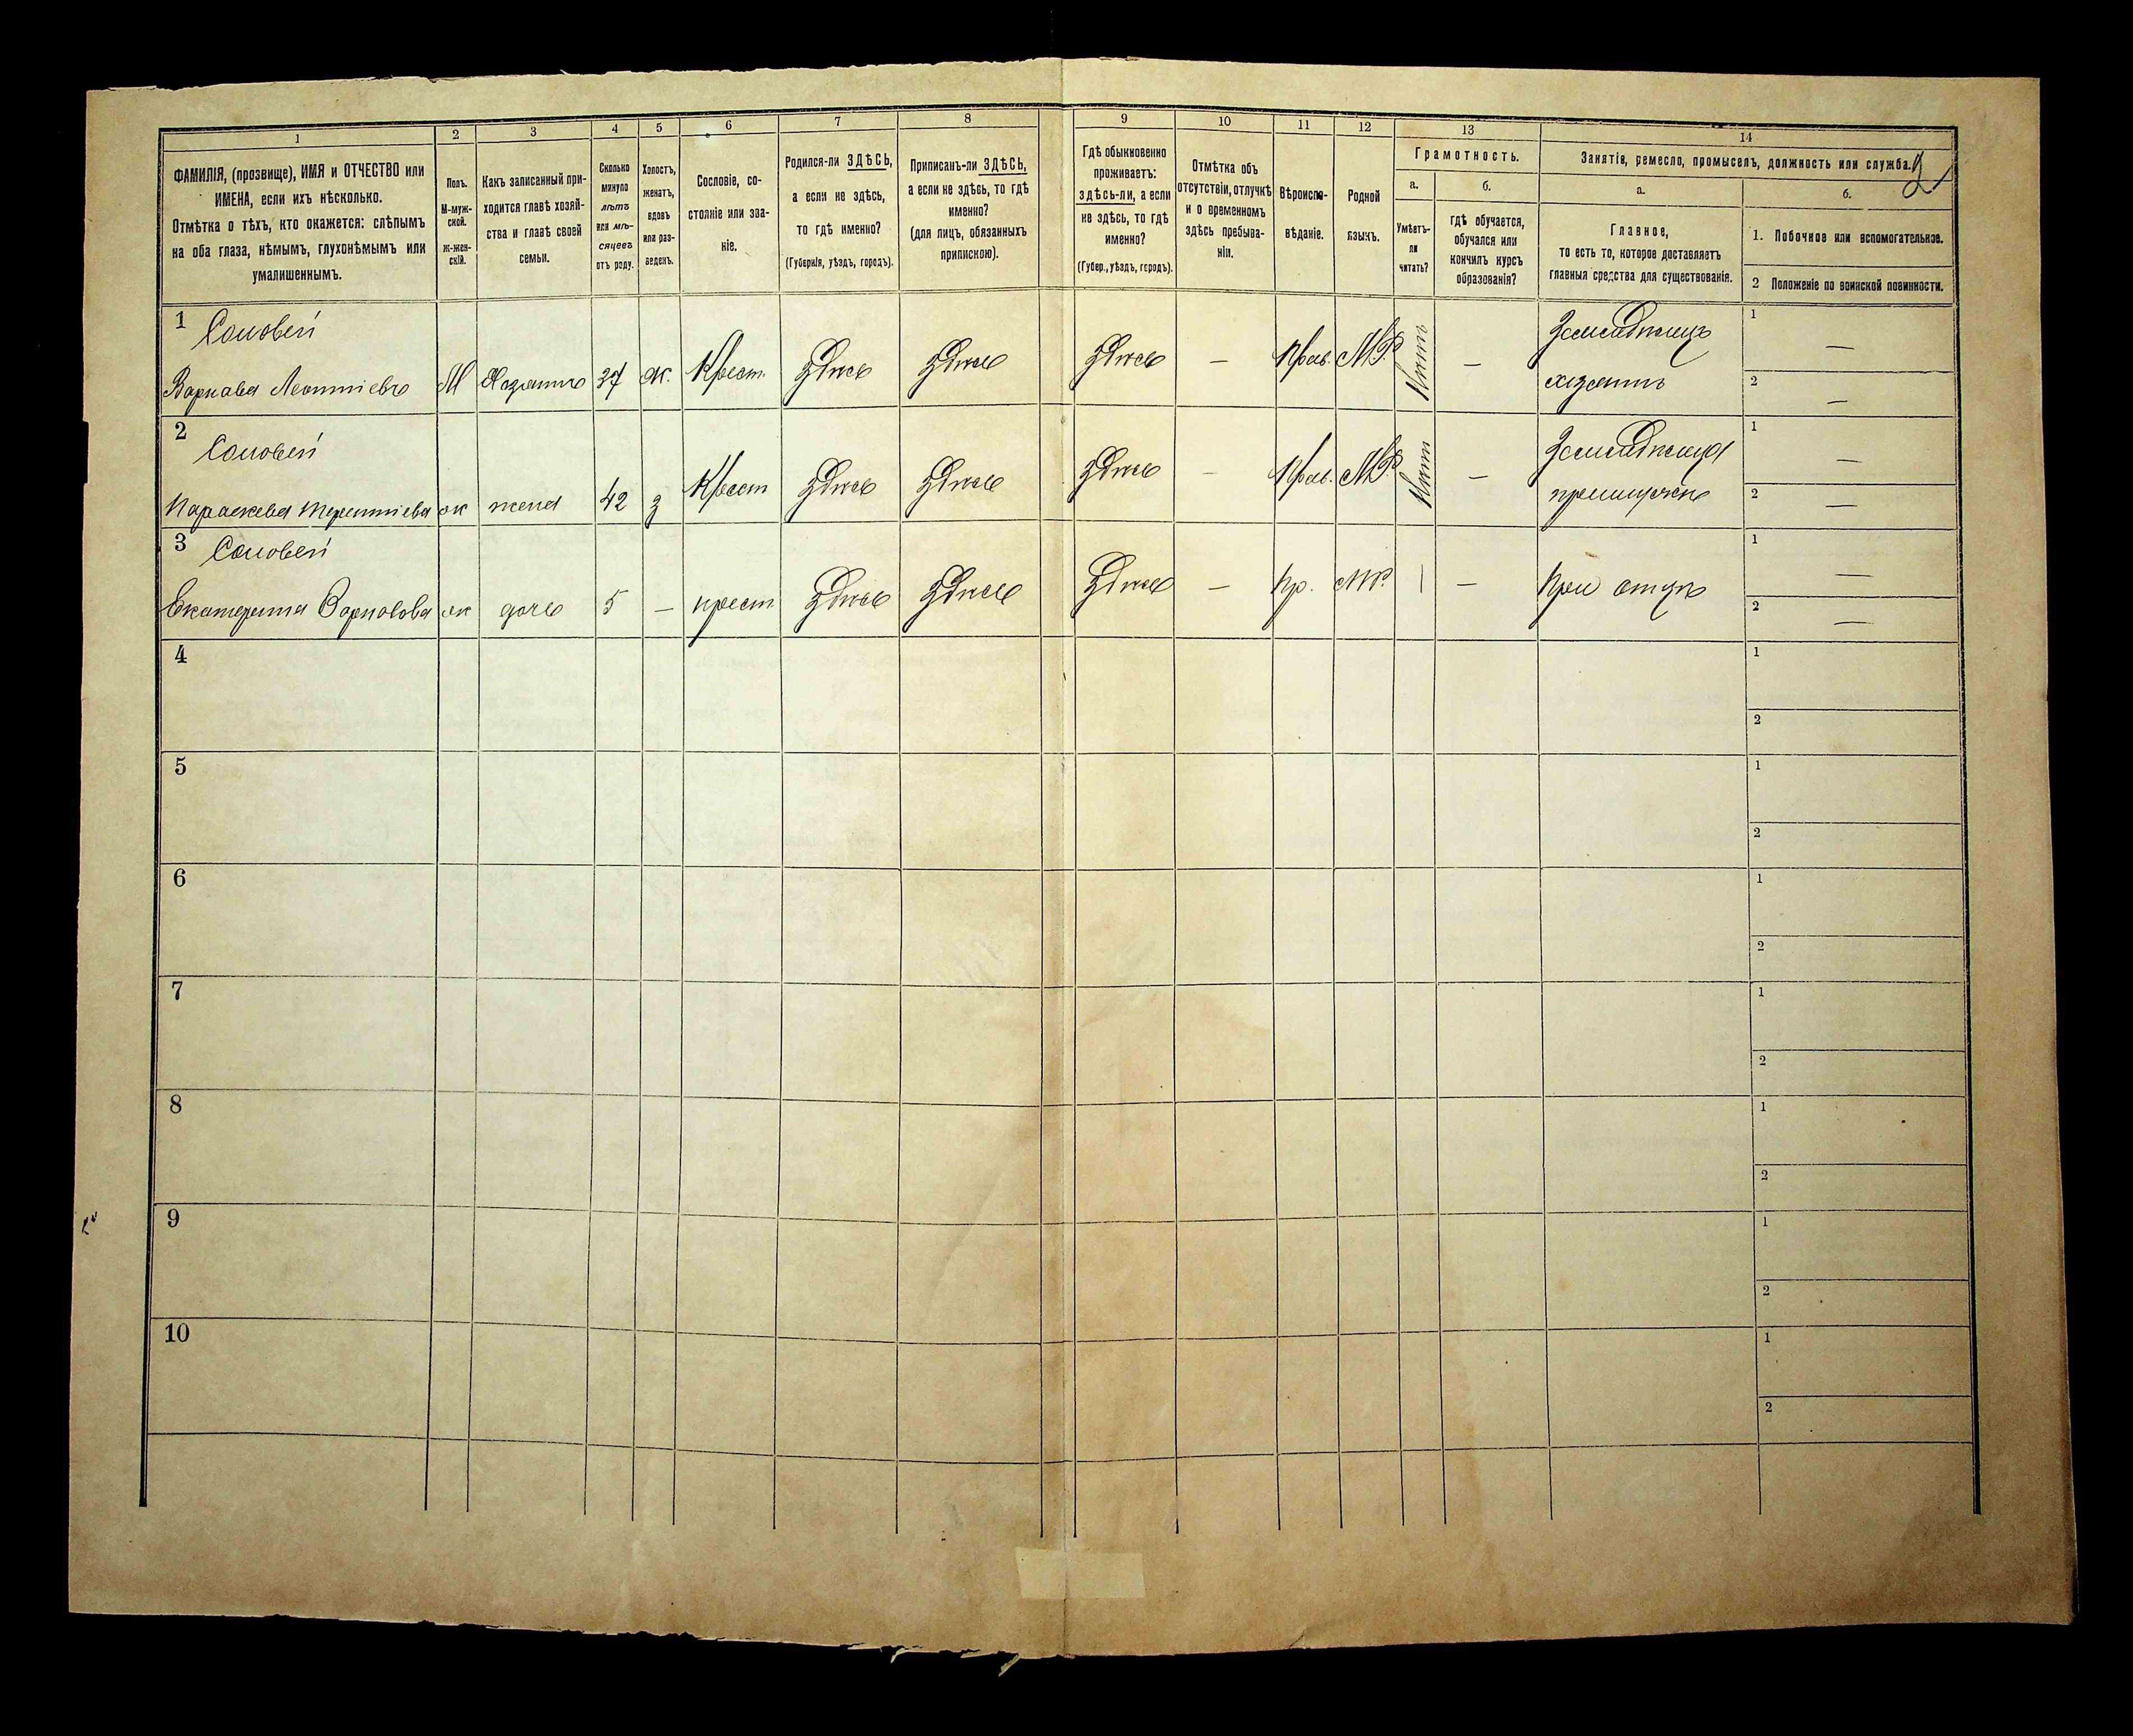 1 2 3 4 5 6 7 8 9 10 11 12 13 14
ФАМИЛІЯ, (прозвище), ИМЯ и ОТЧЕСТВО или
ИМЕНА, если ихъ нѣсколько.
Отмѣтка о тѣхъ, кто окажется: слѣпымъ
на оба глаза, нѣмымъ, глухонѣмымъ или
умалишеннымъ.
Полъ.
М-муж-
ской.
ж-жен-
скій.
Какъ записанный при-
ходится главѣ хозяй-
ства и главѣ своей
семьи.
Сколько
минуло
лѣтъ
или мѣ-
сяцевъ
отъ роду.
Холостъ,
женатъ,
вдовъ
или раз-
веденъ.
Сословіе, со-
стояніе или зва-
ніе.
Родился-ли ЗДѢСЬ,
а если не здѣсь,
то гдѣ именно?
(Губернія, уѣздъ, городъ).
Приписанъ-ли ЗДѢСЬ,
а если не здѣсь, то гдѣ
именно?
(для лицъ, обязанныхъ
припискою).
Гдѣ обыкновенно
проживаетъ:
здѣсь-ли, а если
не здѣсь, то гдѣ
именно?
(Губер., уѣздъ, городъ).
Отмѣтка объ
отсутствіи, отлучкѣ
и о временномъ
здѣсь пребыва-
ніи.
Вѣроиспо-
вѣданіе.
Родной
языкъ.
Грамотность.
а.
Умѣетъ-
ли
читать?
б.
гдѣ обучается,
обучался или
кончилъ курсъ
образованія?
Занятіе, ремесло, промыселъ, должность или служба.
2
а.
Главное,
то есть то, которое доставляетъ
главныя средства для существованія.
б.
1. Побочное или вспомогательное.
2 Положеніе по воинской повинности.
1 Соловей
Варнава Леонтіевъ М Хозяинъ 37 ж. Крест. здѣсь здѣсь здѣсь — Прав. М.Р. Нѣтъ — Земледѣлецъ
хозяинъ
1 —
2 —
2 Соловей
Параскева Терентіева ж жена 42 з Крест здѣсь здѣсь здѣсь — Прав. М.Р. Нѣтъ —
1 —
2 —
3 Соловей
Екатерина Варнавова ж дочь 5 — крест здѣсь здѣсь здѣсь — Пр. М.Р. — — При отцѣ
1 —
2 —
4
1
2
5
1
2
6
1
2
7
1
2
8
1
2
9
1
2
10
1
2